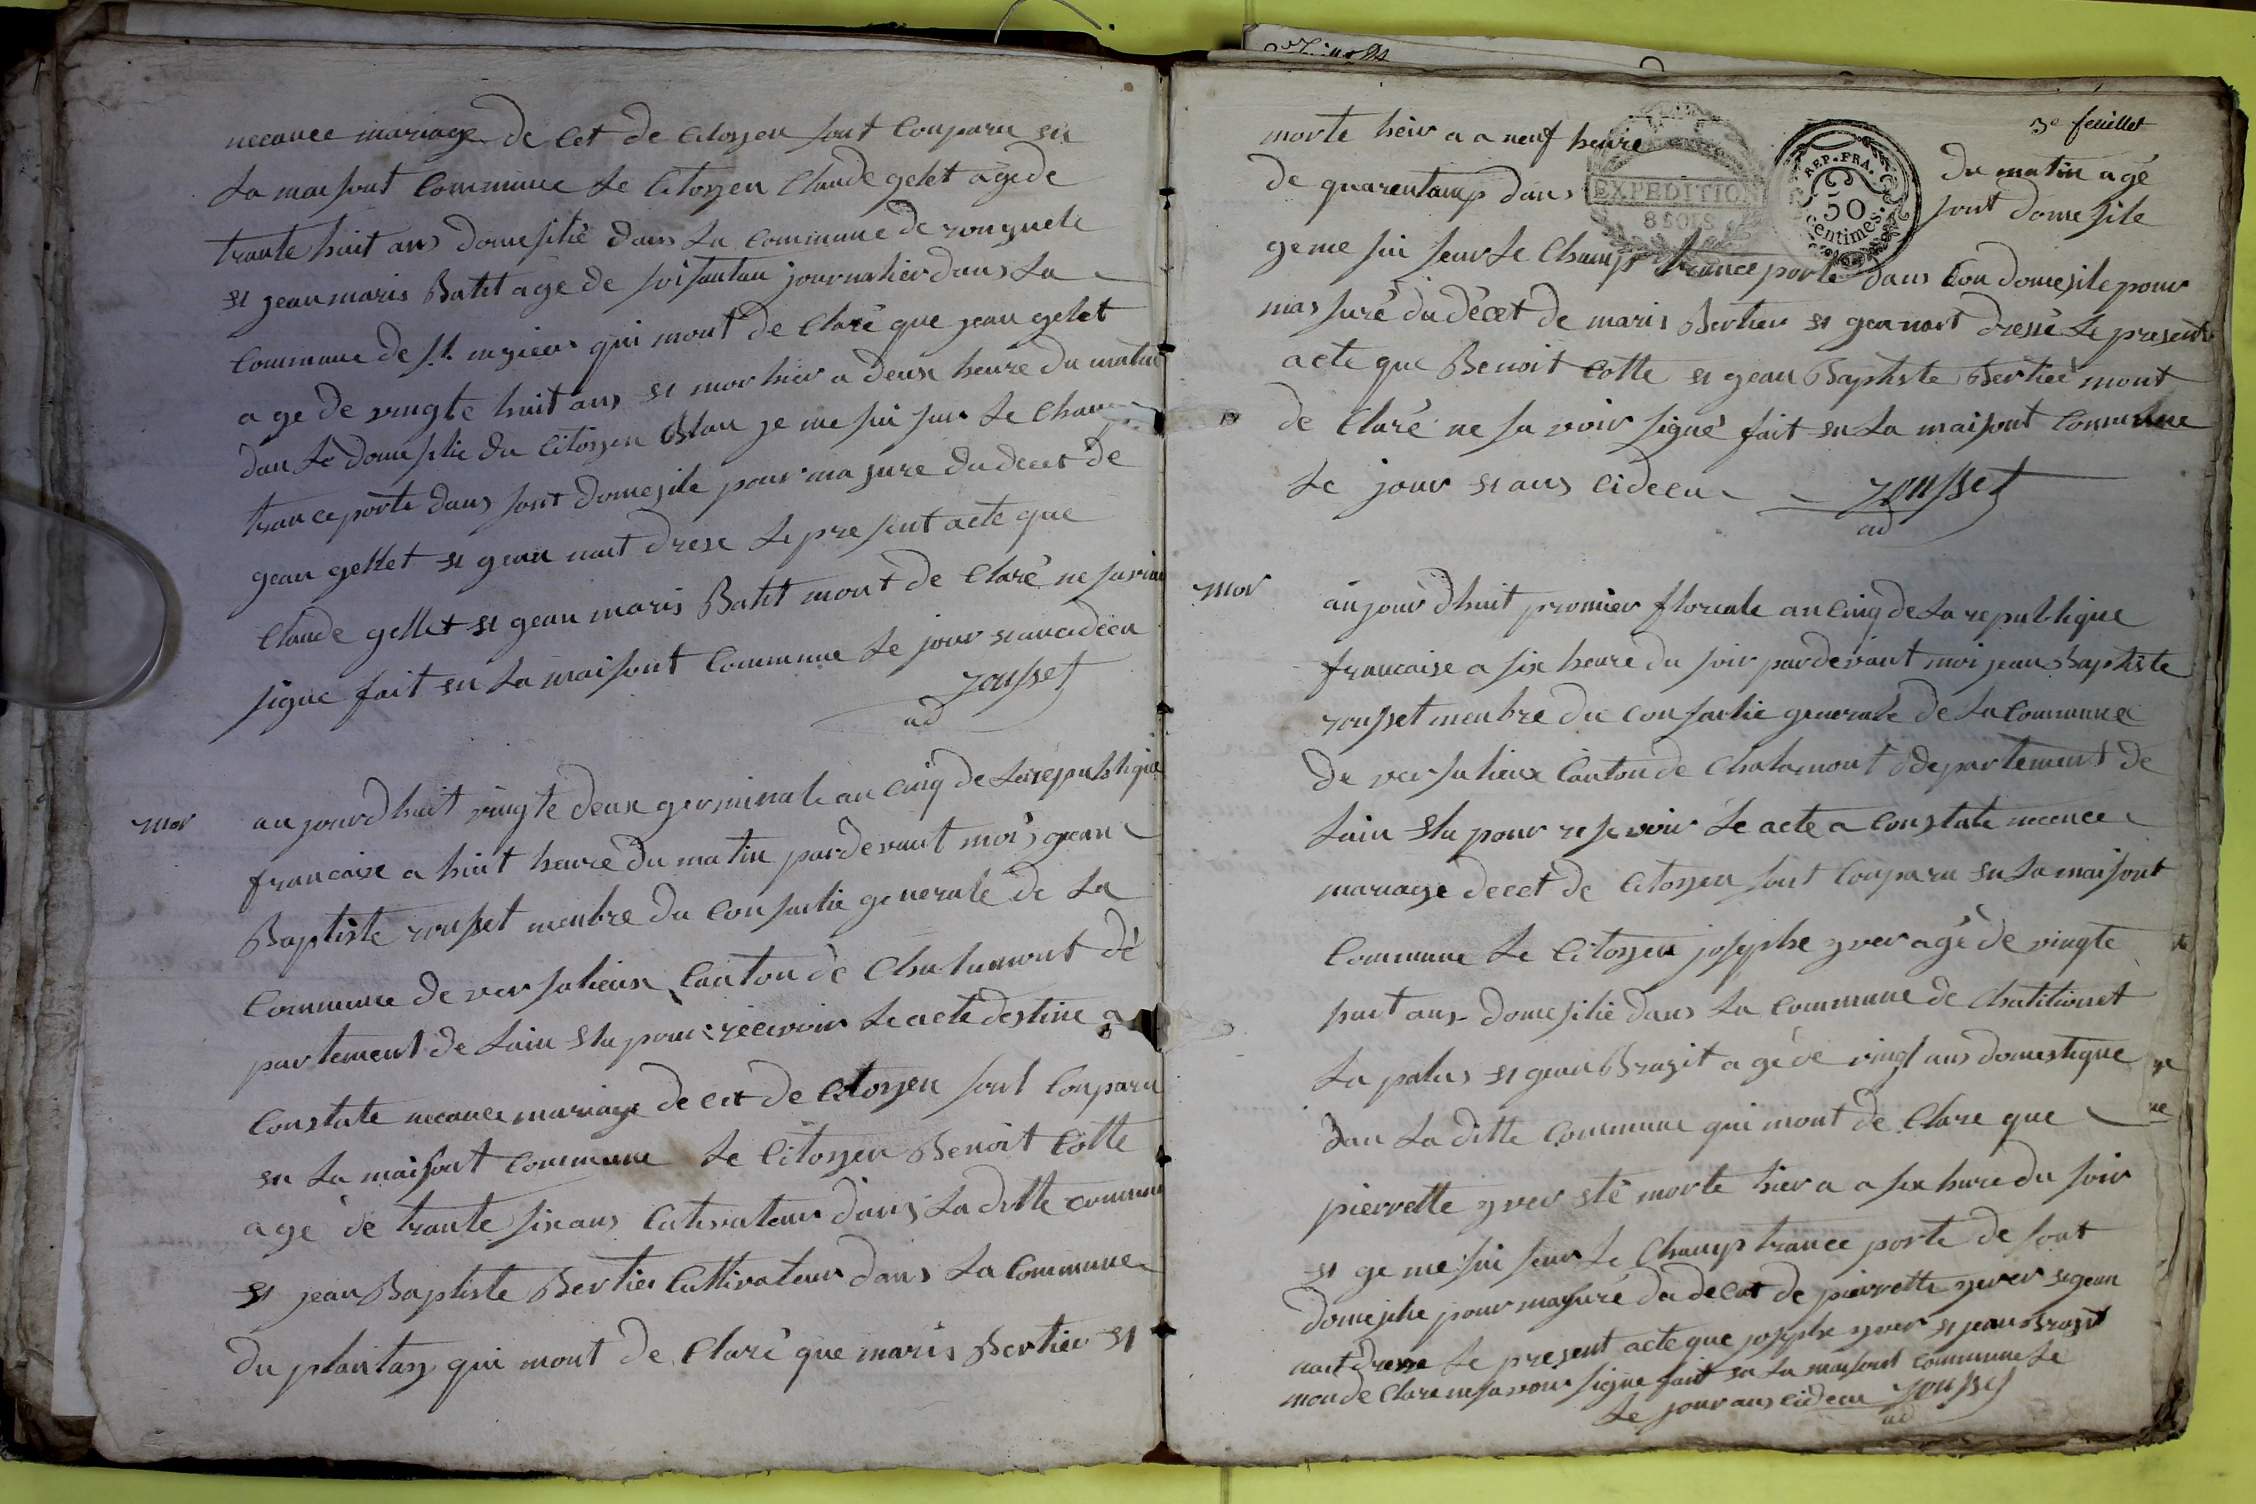 necance mariage de cet de Citoyen sont Conparu en
La maisont Commune Le Citoyen Claude gelet age de
trante huit ans domesilié dans La Commune de
et jean maris Batit agé de soisantan journalier dans La
Commune de st. qui mont de Claré que jean gelet
age de vingte huit ans et mor hier a deux heure du matin
dan Le domesilie du Citoyen je me sui sur Le Chan
tranceporté dans sont domesile pour ma sure du decet de
gean gellet et gean nait drese Le present acte que
Claude gellet et gean maris Batit mont de Claré ne savoir
signe fait en La maisont Commune Le jour et an cideçu
rousset
ad
mor
aujourdhuit vingte deux germinale an Cinq de La republique
francaise a huit heure du matin pardevant mois gean
Baptiste rousset menbre du Consaelie generale de La
Commune de versalieux Canton de Chalamont dé
partement de Lain elu pour recevoir Le acte destine a
Constate necance mariage de cet de Citoyen sont Conparu
en La maisont commune Le Citoyen Benoit Cotte
agé de trante six ans Cutivateur dans La ditte commune
et jean Baptiste Bertier Cultivateur dans La Commune
du plantay qui mont de Claré que maris Bertier et
3e feuillet
morte heir a a neuf heure du matin agé
EXPEDITION
8 SOLS
REP. FRA.
50
centimes.
de quarentamp dans sont domesile
ge me sui seur Le Champ tranceporte dans Con domesile pour
mas suré du décet de maris Bertier et gean nait dressé Le present
acte que Benoit Cotte et gean Baptiste Bertieé mont
de Claré ne savoir signé fait en La maisont Commune
Le jour et ans cideçu rousset
ad
mor
aujourdhuit promier floreale an Cinq de La republique
francaise a six heure du soir pardevant moi jean Baptiste
rousset menbre du Consaelie generale de La Commune
de versalieux Canton de Chalamont departement de
Lain elu pour reservoir Le acte a Constate necence
mariage de cet de Citoyen sont Conparu en La maisont
Commune Le Citoyen josephe yver agé de vingte
ans domesilié dans La Commune de
La palus et gean Brazit agé de vingt ans domestique
dan La ditte Commune qui mont de Clare que
pierrette yver eté morte hier a a six hure du soir
et ge me sui seur Le Champ trance porte de sont
domesilie pour masuré du decet de pierrette yver et gean
nait dresse Le present acte que josephe yver et jean Brazit
mon de Clare ne savoir signe fait en La maisont Commune Le
Le jour ans cideçu rousset
ad